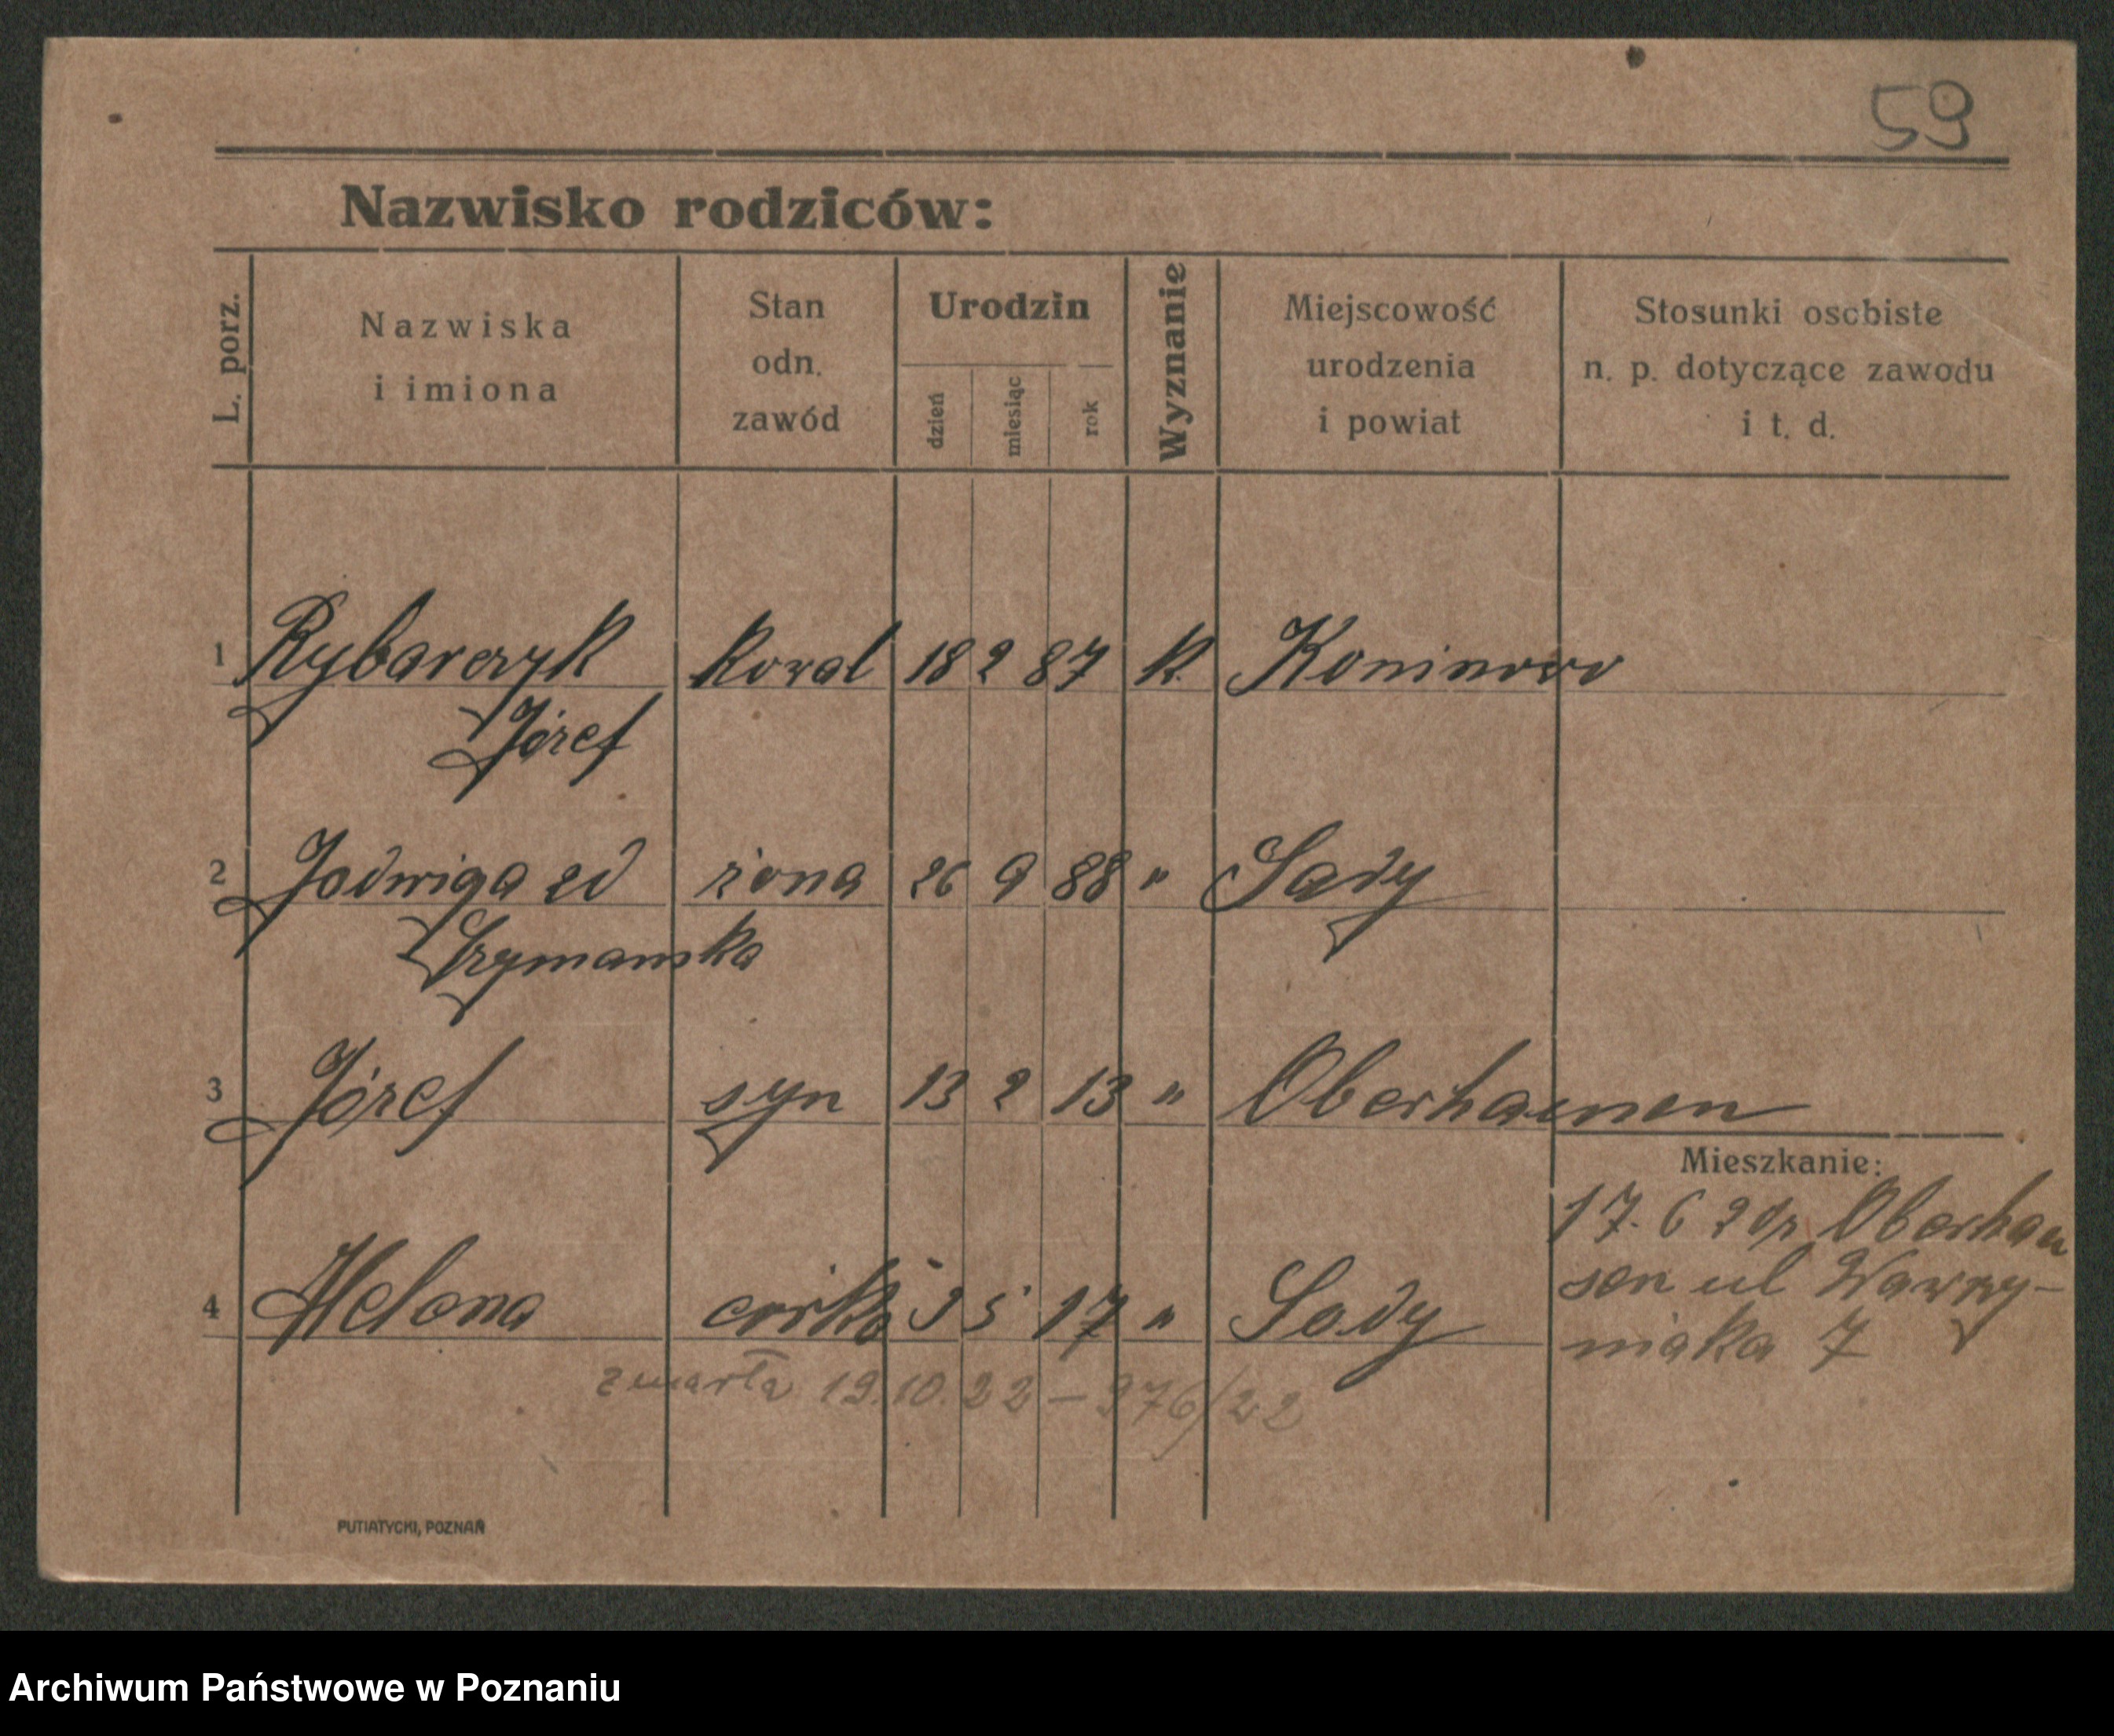 59
Nazwisko rodziców:
L. porz.
Nazwiska
i imiona
Stan
odn.
zawód
Urodzin
dzień
miesiąc
rok
Wyznanie
Miejscowość
urodzenia
i powiat
Stosunki osobiste
n. p. dotyczące zawodu
i t. d.
1 Rybarczyk kowal 18 2 87 k. Koninowo
Józef
2 Jadwiga zd żona 26 9 88 " Sady
Szymanska
3 Józef syn 13 2 13 " Oberhausen
Mieszkanie:
17. 6 20 Oberhau
sen ul Wawrzy-
niaka 7
4 Helena córka 3 5 17 " Sady
zmarła 19.10.22 – 976/22
PUTIATYCKI, POZNAŃ
Archiwum Państwowe w Poznaniu